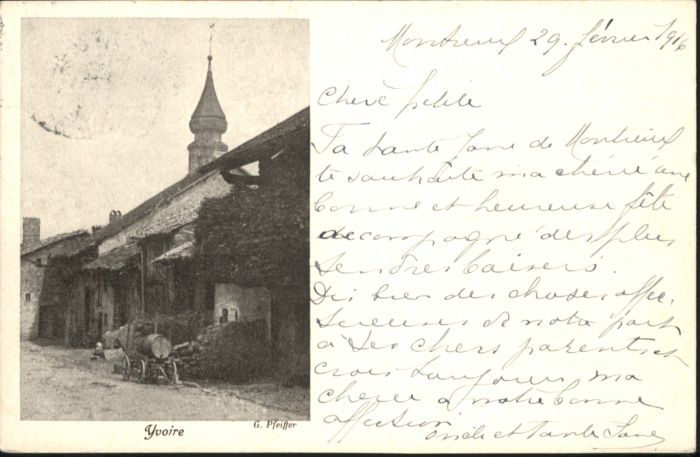 Montreux 29. février 1916
Chère petite
Ta tante Jane de Montreux
te souhaite ma chérie une
bonne et heureuse fête
accompagné des plus
tendres baisers.
Dis bien des choses affec-
tueuses de notre part
à tes chers parents et
crois toujours ma
chérie à notre bonne
affection
oncle et tante Jane
Yvoire
G. Pfeiffer